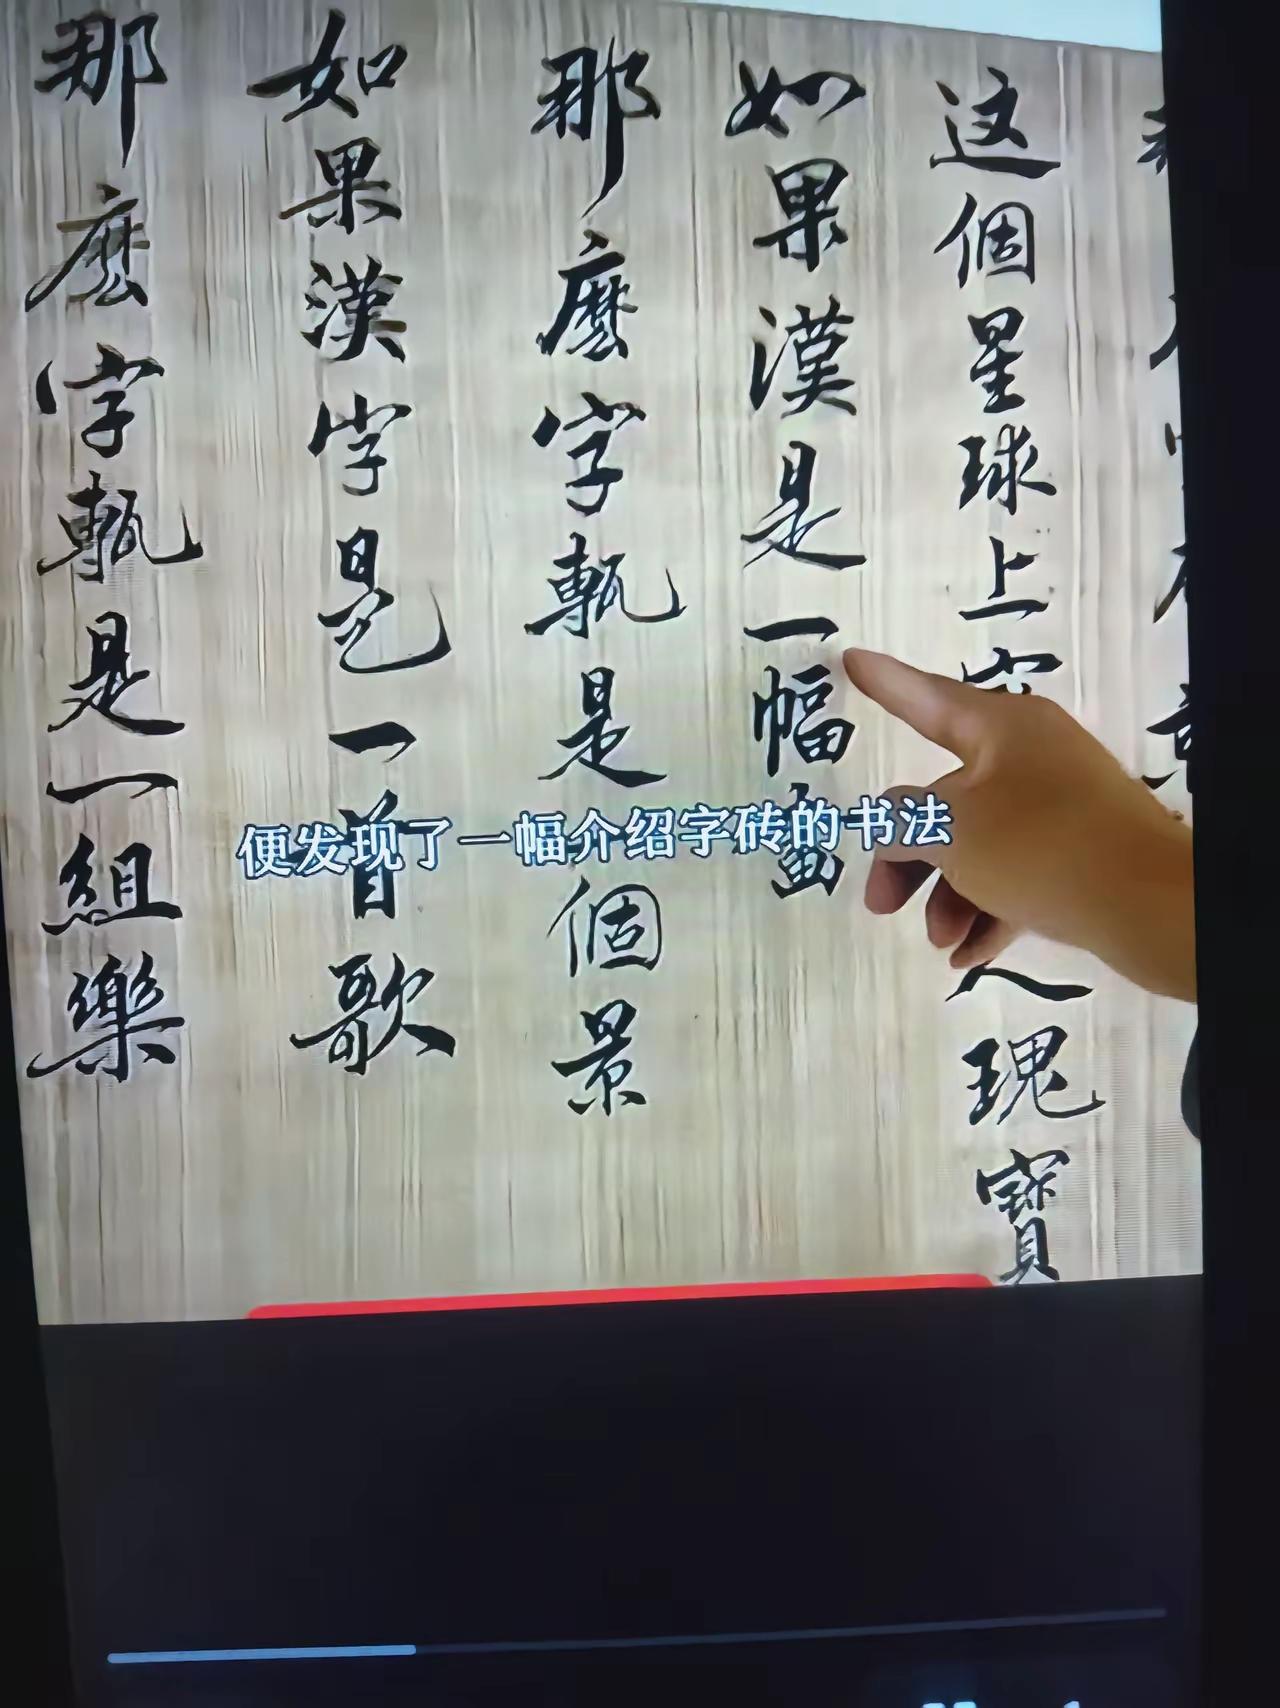 这個星球上
人瑰寶
如果漢是一幅畫
那麽字甎是
個景
如果漢字是一首歌
那麽字甎是一組樂
便发现了一幅介绍字砖的书法